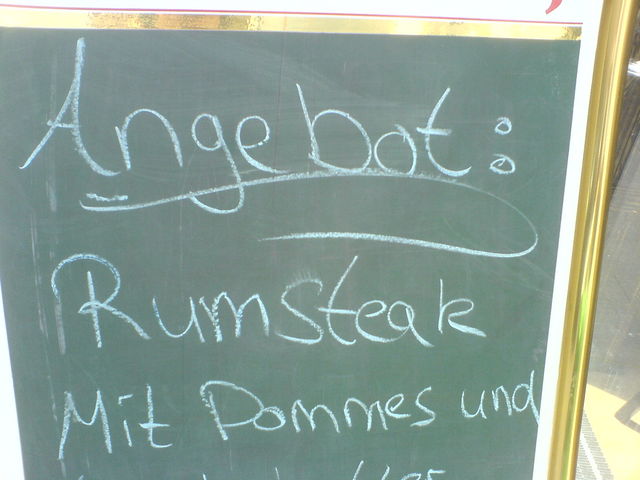 Angebot:
Rumsteak
Mit Pommes und